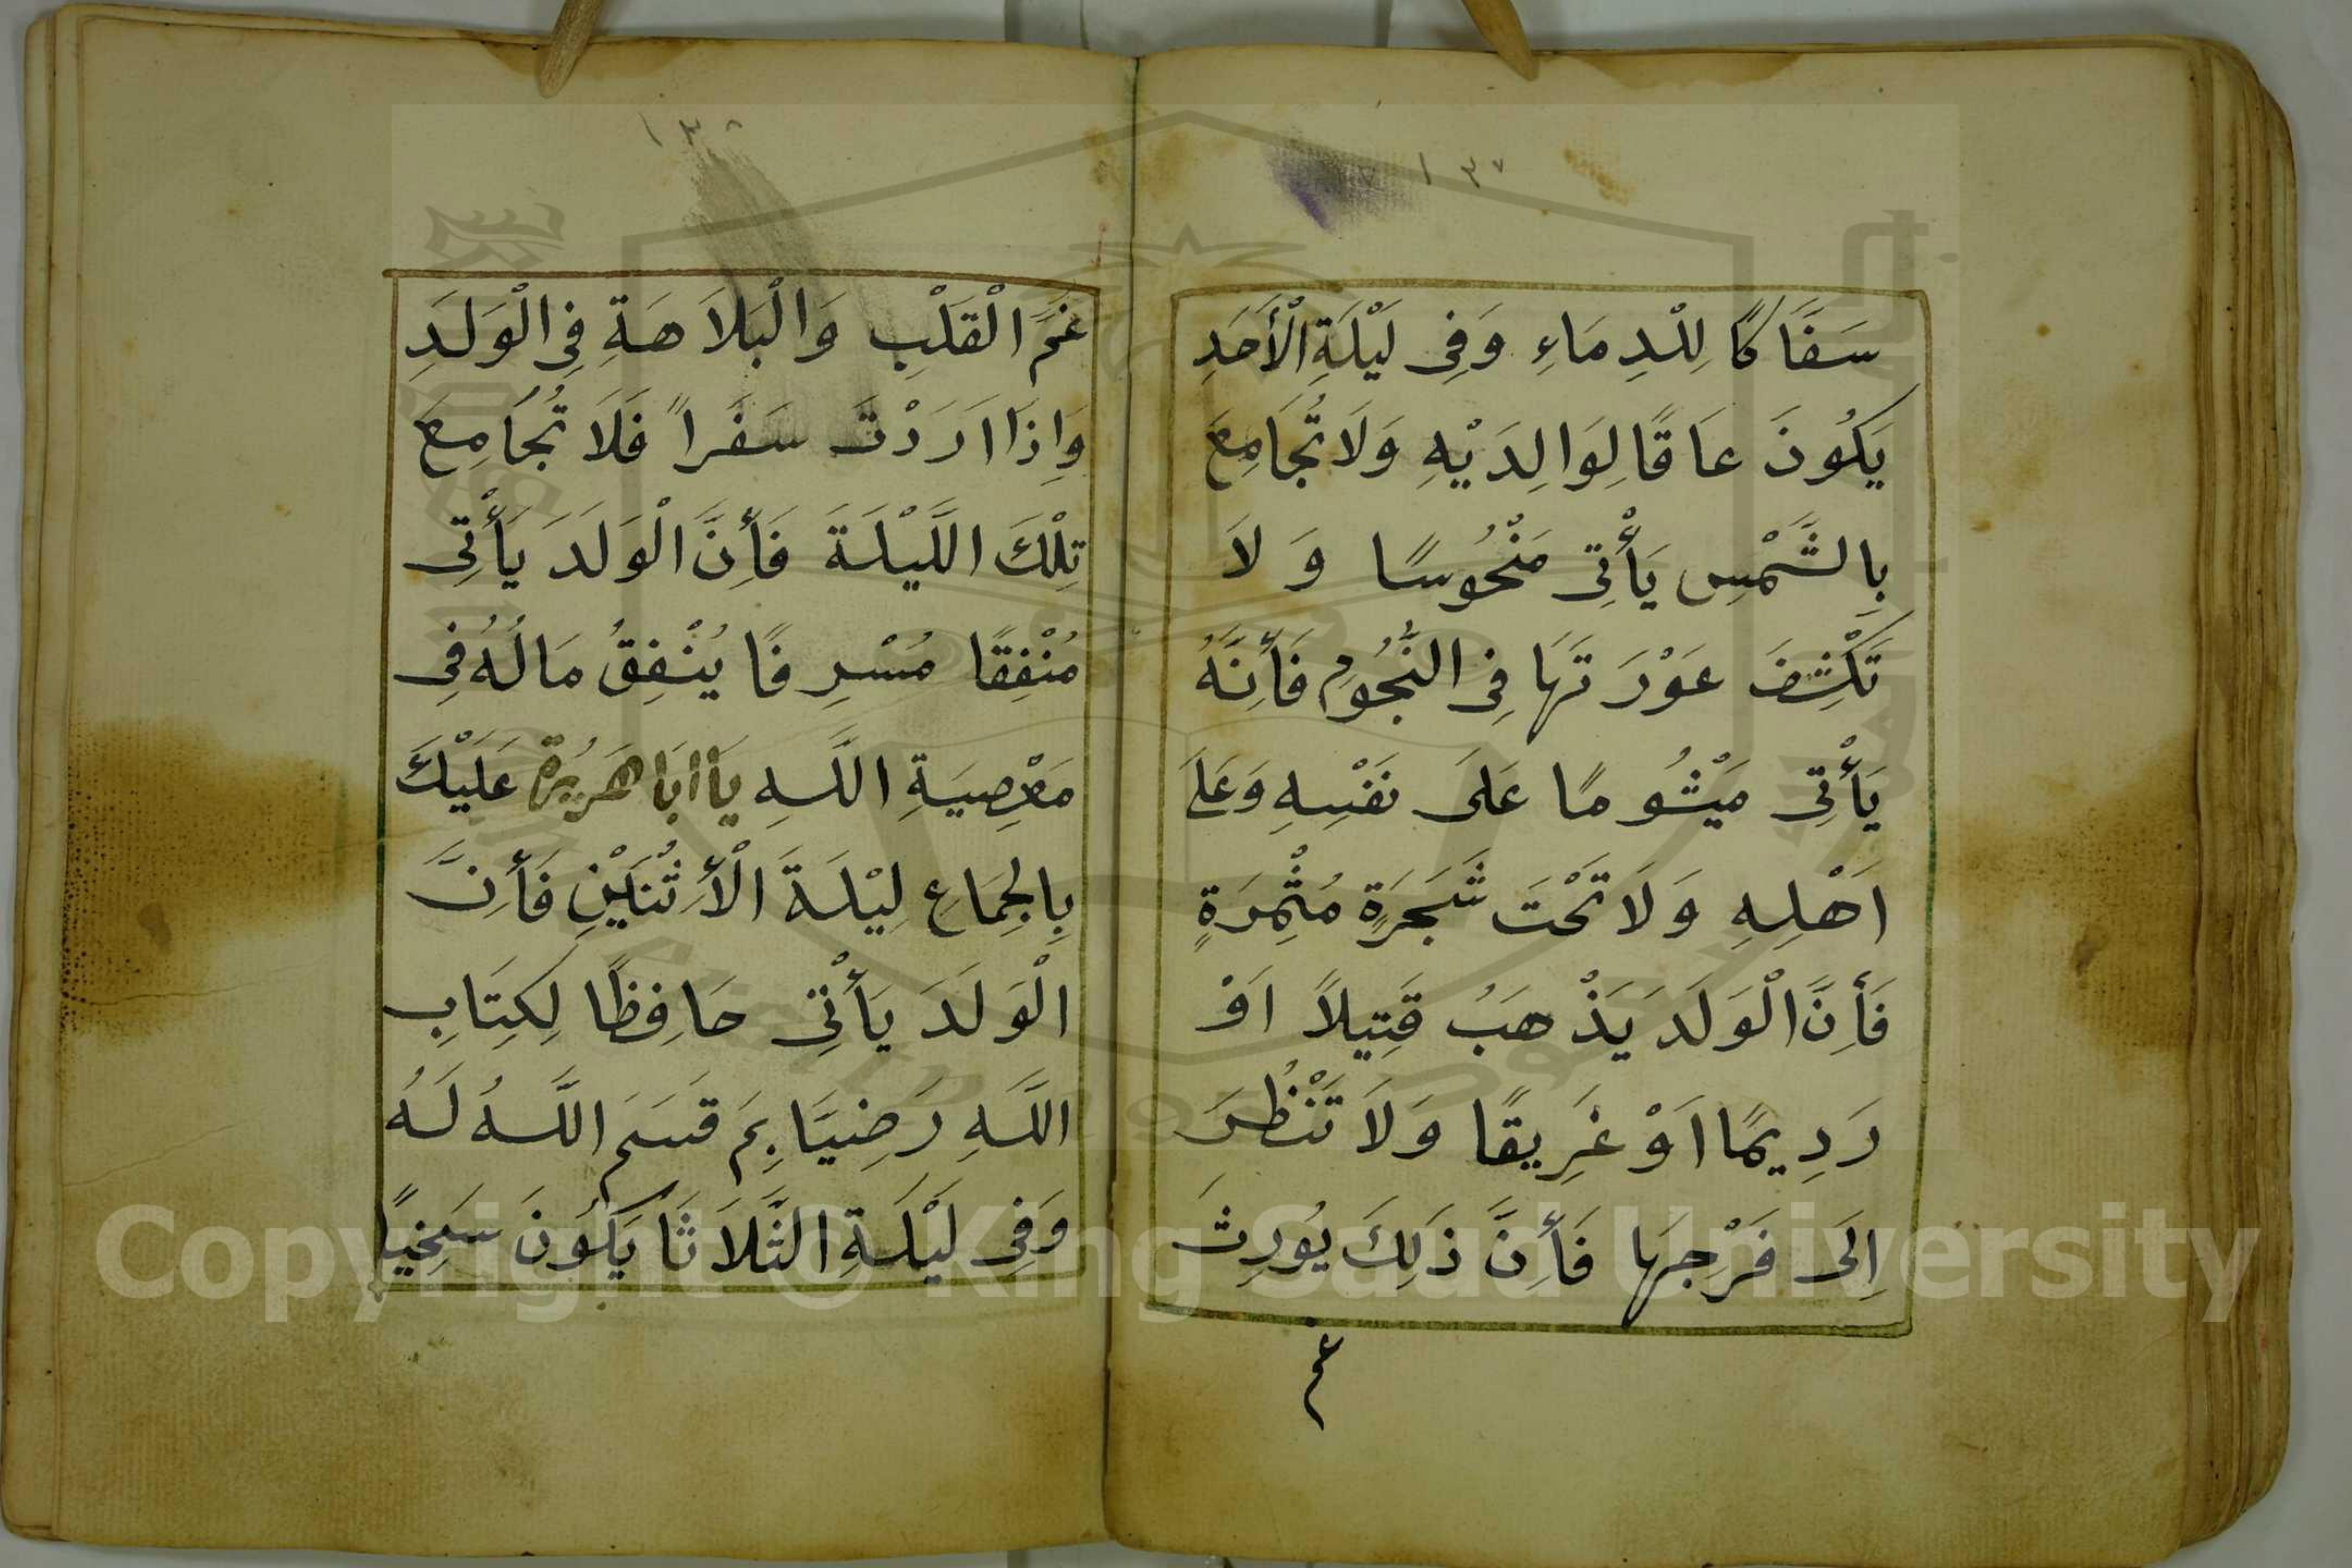 ١٣٧
سَفَّاكًا لِلْدِمَاءِ وَفِى لَيْلَةِ الْأَحَدِ
يَكُونَ عَاقًا لِوَالِدَيْهِ وَلَا تُجَامِعَ
بِالشَّمْسِ يَأْتِى مَنْحُوسًا وَلَا
تَكْشِفَ عَوْرَتَهَا فِى النُّجُومِ فَأِنَّهُ
يَأْتِى مَيْشُومًا عَلَى نَفْسِهِ وَعَلَى
اَهْلِهِ وَلَا تَحْتَ شَجَرَةٍ مُثْمِرَةٍ
فَأِنَّ الْوَلَدَ يَذْهَبُ قَتِيلاً اَوْ
رَدِيمًا اَوْ غَرِيقًا وَلَا تَنْظُرَ
اِلَى فَرْجِهَا فَأِنَّ ذَلِكَ يُورِثَ
غم
١٣٨
غَمَّ الْقَلْبِ وَالْبَلَاهَةِ فِى الْوَلَدِ
وَاِذَا اَرَدْتَ سَفَرًا فَلَا تُجَامِعَ
تِلْكَ اللَّيْلَةَ فَأِنَّ الْوَلَدَ يَأْتِى
مُنْفِقًا مُسْرِفًا يُنْفِقُ مَالُهُ فِى
مَعْصِيَةِ اللَّهِ يَا اَبَا هَرَيْرَة عَلَيْكَ
بِالْجِمَاعِ لِيْلَةَ الْأِثْنَيْنِ فَأِنَّ
الْوَلَدَ يَأْتِى حَافِظًا لِكِتَابِ
اللَّهِ رَضِيَا بِمَ قَسَمَ اللَّهُ لَهُ
وَفِى لَيْلَةِ الثَّلَاثَا يَكُونَ سَخِيًا
Copyright © King Saud University